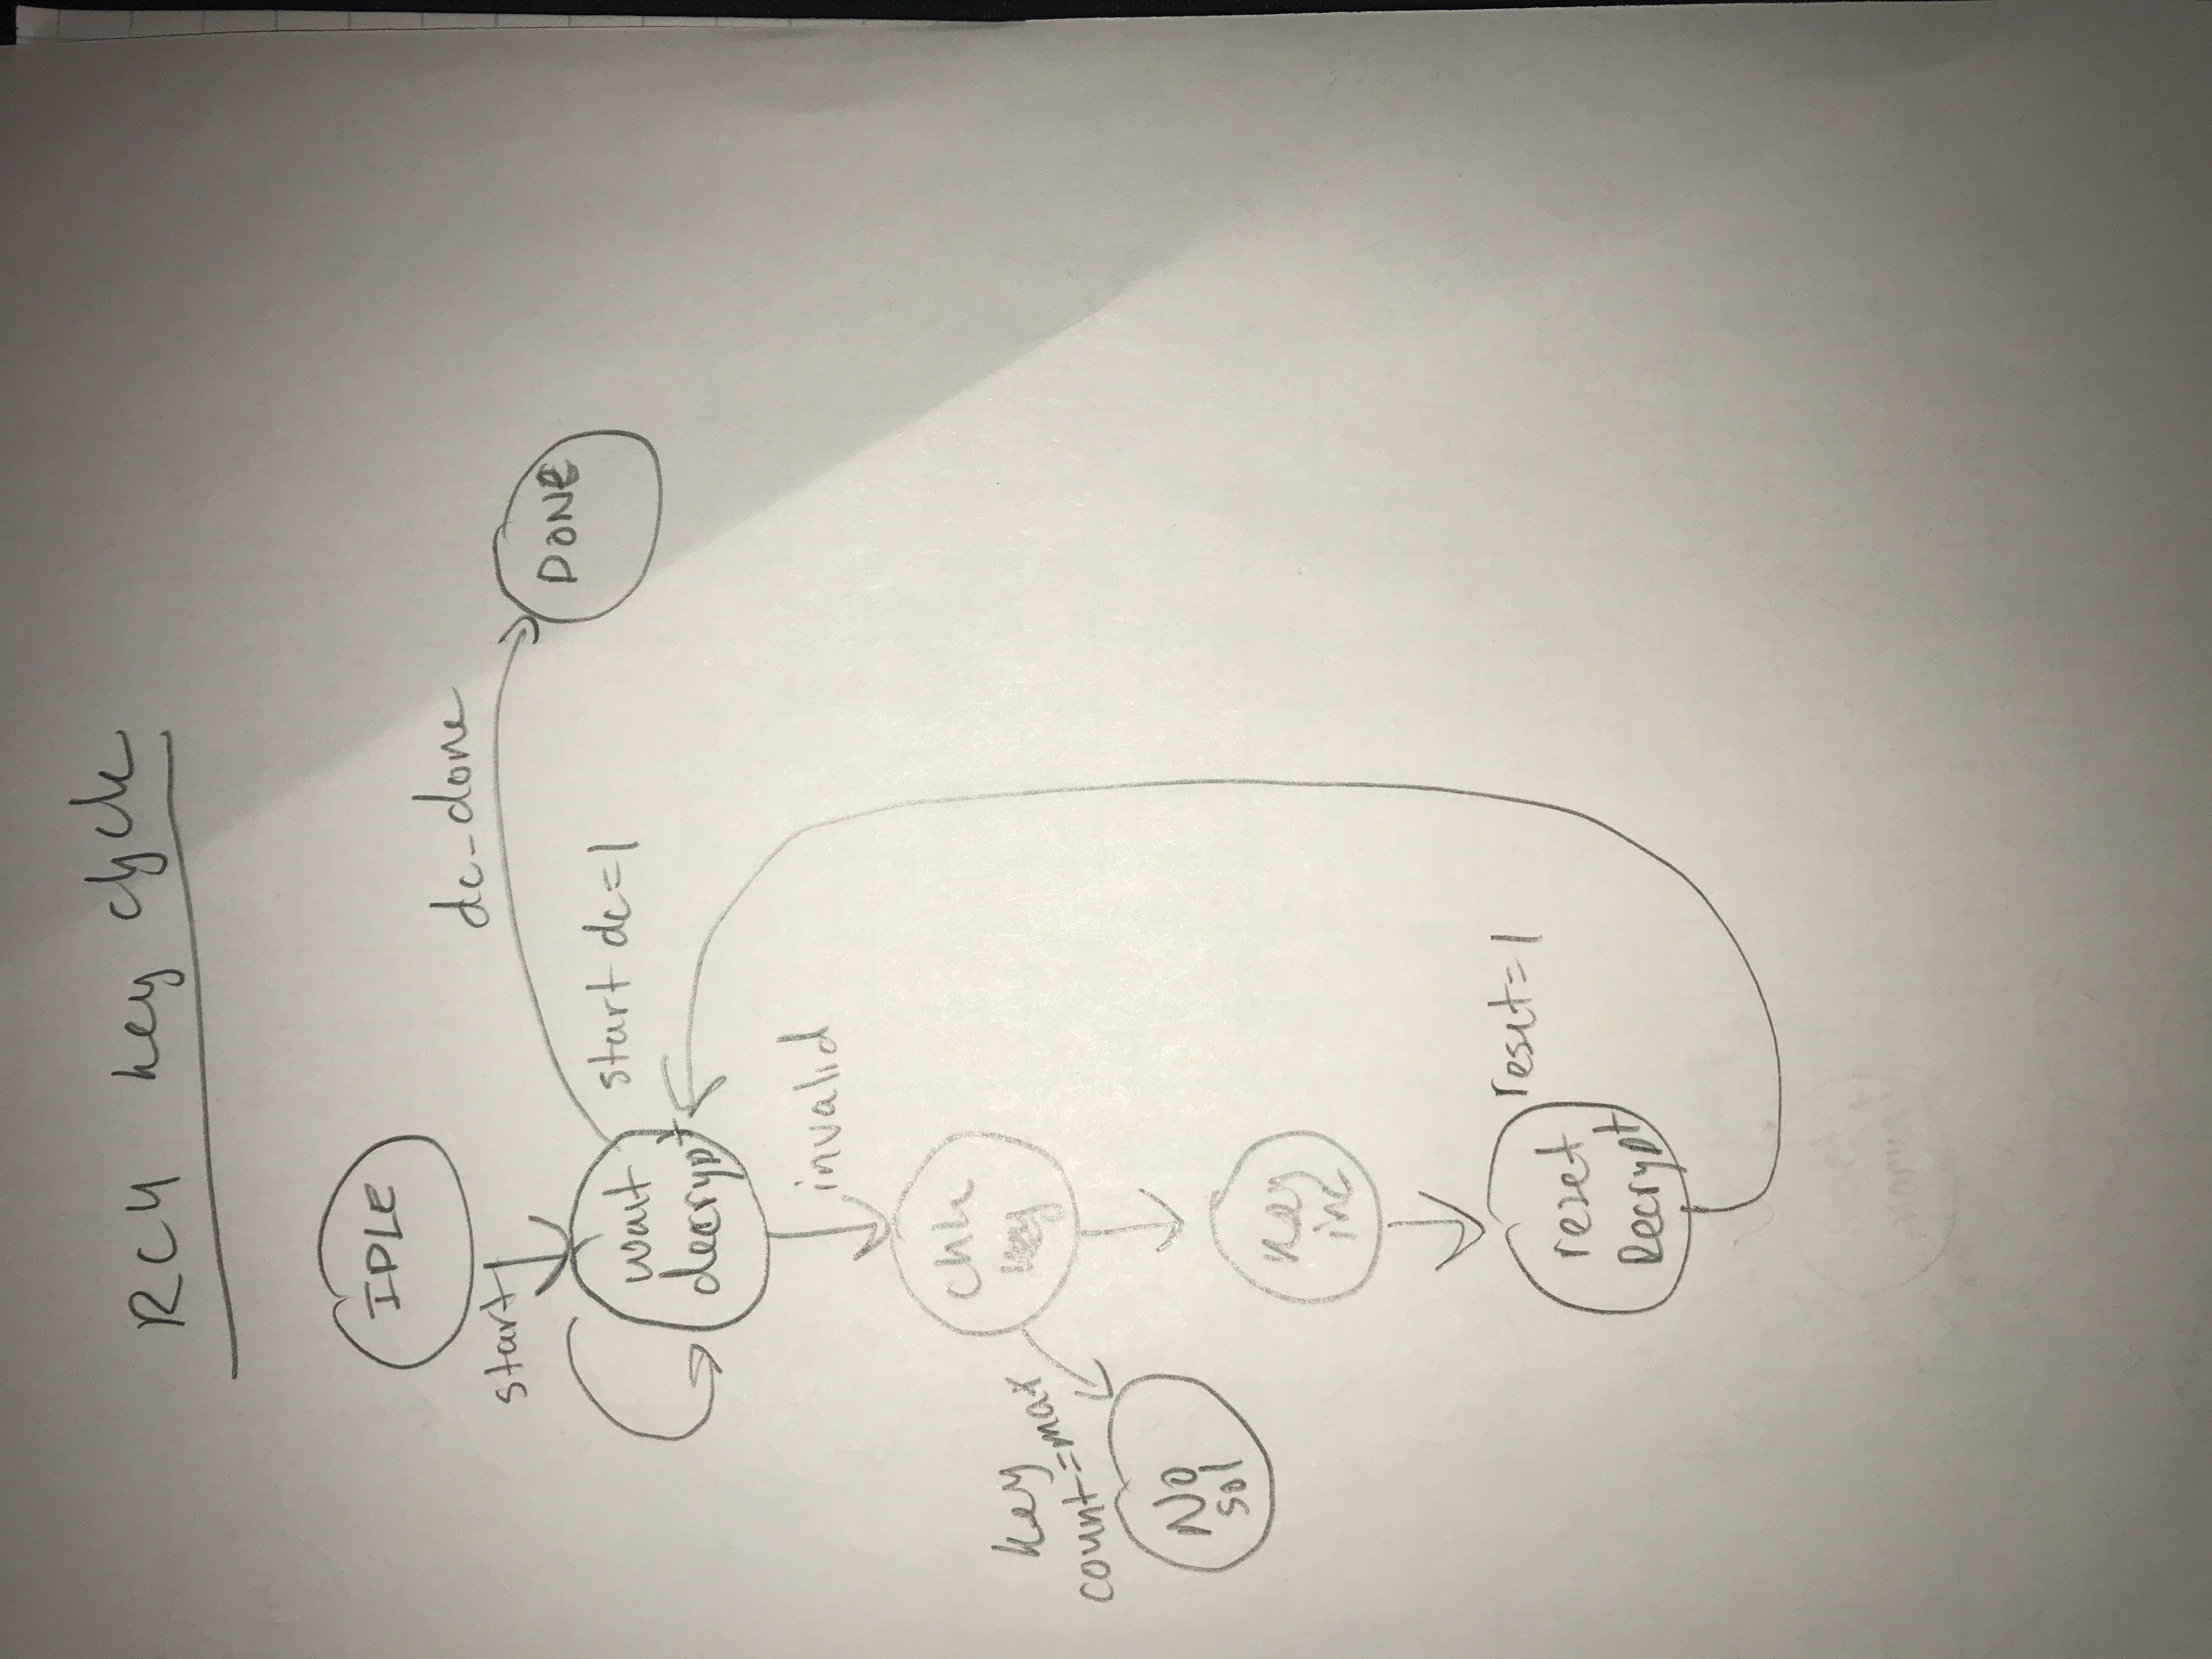 RC4 key cycle
IDLE
start
dc_done
DONE
wait
decrypt
start dc=1
invalid
chk
key
key
count=max
No
sol
key
inc
reset=1
reset
Decrypt